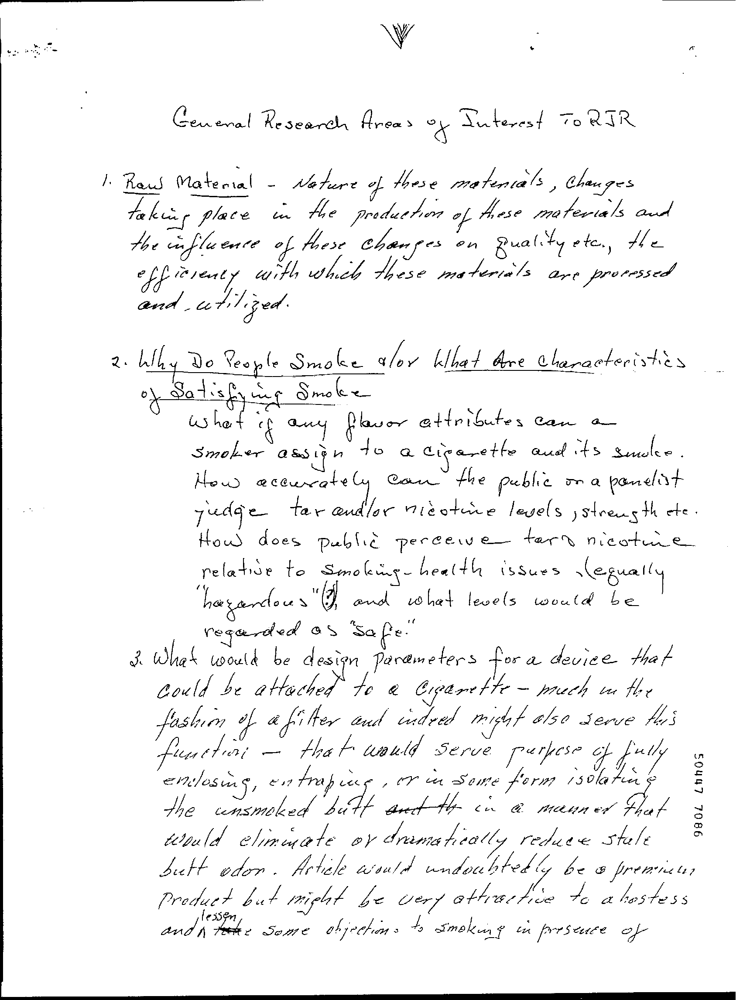 General Research Areas of Interest To RJR
1. Raw Material - Nature of these materials, changes
taking place in the production of these materials and
the influence of these changes on quality etc., the
efficiency with which these materials are processed
and utilized.
2. Why Do People Smoke a/or What Are Characteristics
of Satisfying Smoke
What if any flavor attributes can a
smoker assign to a cigarette and its smoke.
How accurately can the public or a panelist
judge tar and/or nicotine levels, strength etc.
How does public perceive tar nicotine
relative to smoking-health issues, (equally
"hazardous" (?), and what levels would be
regarded as "safe."
3. What would be design parameters for a device that
could be attached to a cigarette - much in the
fashion of a filter and indeed might also serve this
function - that would serve purpose of fully
enclosing, entraping, or in some form isolating
the unsmoked butt and th in a manner that
would eliminate or dramatically reduce stale
butt odor. Article would undoubtedly be a premium
product but might be very attractive to a hostess
and lessen take some objections to smoking in presence of
50447 7086